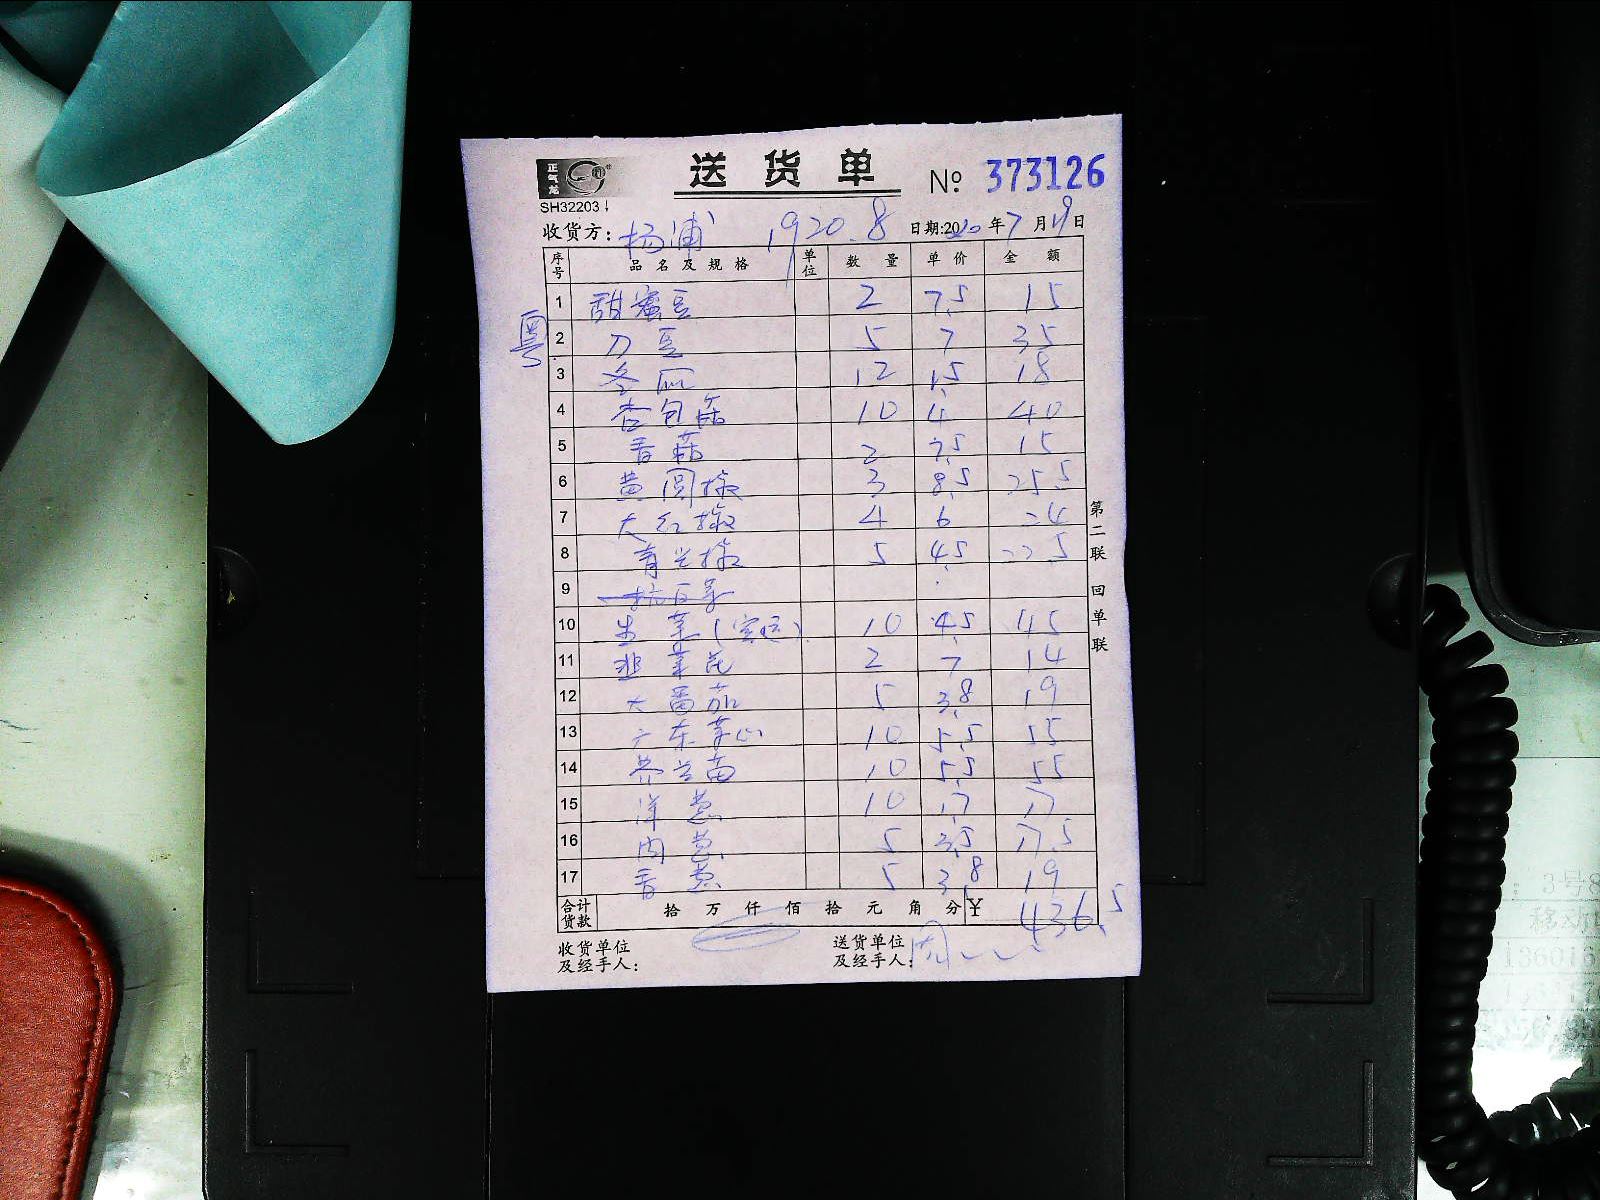 正气龙
送货单 № 373126
SH32203
收货方: 杨浦 1920.8 日期:2020年7月19日
序号 品名及规格 单位 数量 单价 金额
粤
1 甜蜜豆 2 7.5 15
2 刀豆 5 7 35
3 冬瓜 12 1.5 18
4 杏包菇 10 4 40
5 香菇 2 7.5 15
6 黄圆椒 3 8.5 25.5
7 大红椒 4 6 24
8 青尖椒 5 4.5 22.5
9 杭白菜
10 生菜( ) 10 4.5 45
11 韭菜花 2 7 14
12 大番茄 5 3.8 19
13 广东菜心 10 5.5 55
14 芥兰苗 10 5.5 55
15 洋葱 10 1.7 17
16 肉葱 5 3.5 17.5
17 香葱 5 3.8 19
合计货款 拾 万 仟 佰 拾 元 角 分 ¥ 436.5
收货单位及经手人:
送货单位及经手人:
第二联 回单联
: 3号8
移动
136016